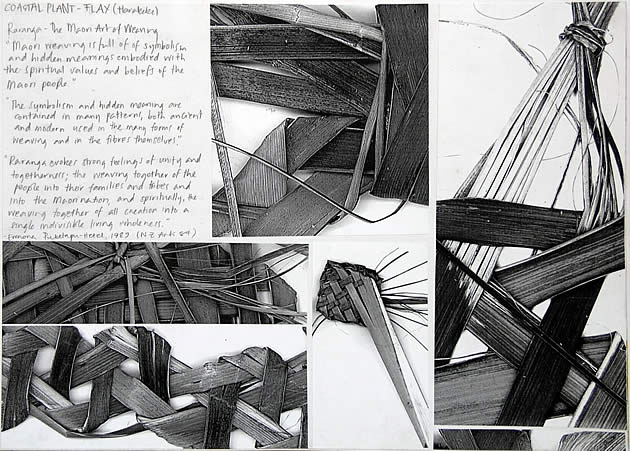 COASTAL PLANT - FLAX (Harakeke)
Raranga - The Maori Art of Weaving
"Maori weaving is full of of symbolism
and hidden meanings embodied with
the spiritual values and beliefs of the
Maori people."
"The symbolism and hidden meaning are
contained in many patterns, both ancient
and modern used in the many forms of
weaving and in the fibres themselves."
"Raranga evokes strong feelings of unity and
togetherness; the weaving together of the
people into their families and tribes and
into the Maori nation, and spiritually, the
weaving together of all creation into a
single indivisible living wholeness."
1989 (N.Z Arts